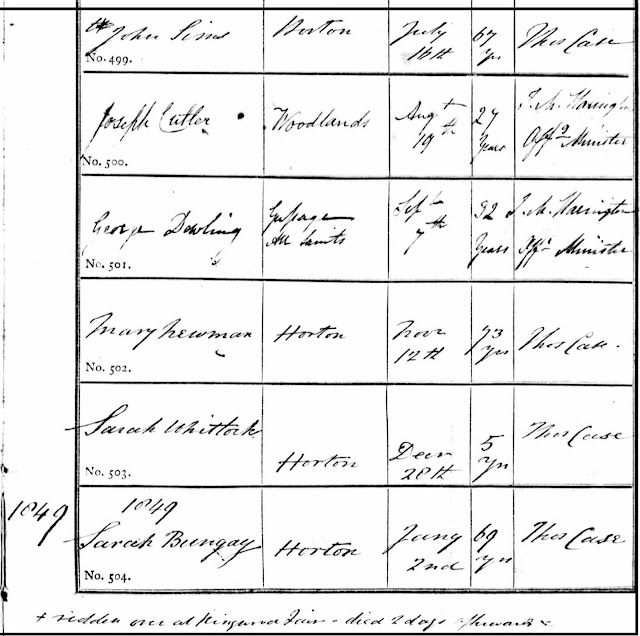 John Sims Horton July 16th 67 yrs Thos Case
No. 499.
Joseph Cutler Woodlands Augt 19th 27 Years J. M. Harington Offg Minister
No. 500.
George Dowling Gussage All Saints Sept 7th 32 Years J. M. Harington Offg Minister
No. 501.
Mary Newman Horton Novr 12th 73 yrs Thos Case.
No. 502.
Sarah Whitlock Horton Decr 28th 5 yrs Thos Case
No. 503.
1849 1849
Sarah Bungay Horton Jany 2nd 69 yrs Thos Case
No. 504.
+ ridden over at Ringwood Fair - died 2 days afterwards